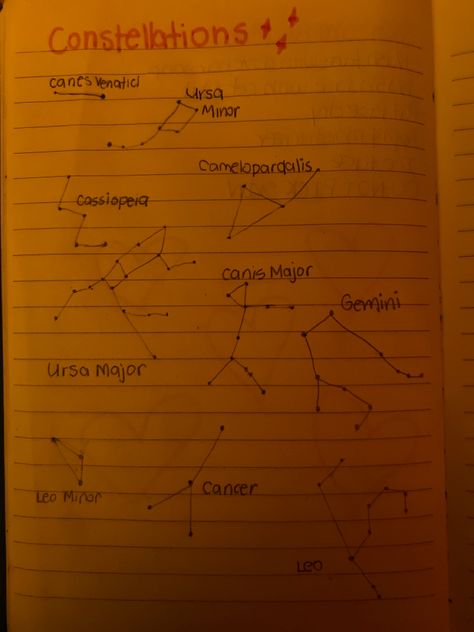 Constellations
canes venatici
Ursa
Minor
Camelopardalis
Cassiopera
Canis Major
Gemini
Ursa Major
Leo Minor
Cancer
Leo